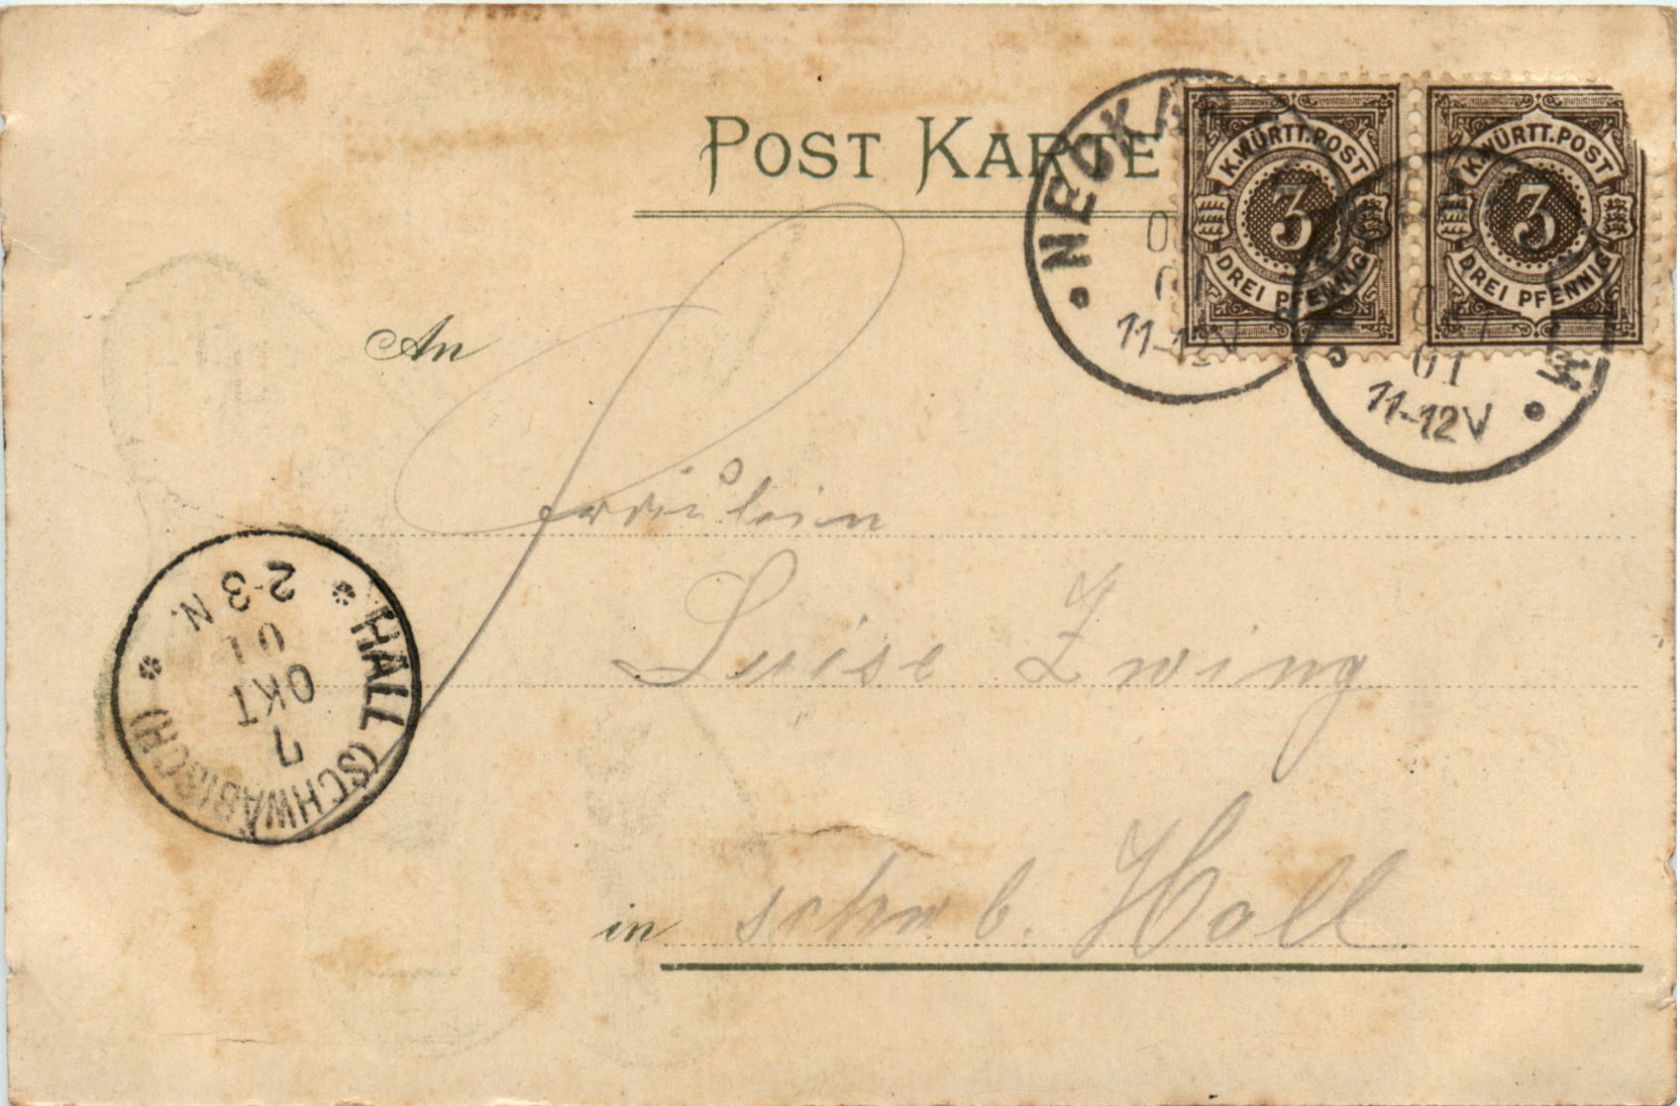 POST KARTE
K.WÜRTT.POST
3
DREI PFENNIG
K.WÜRTT.POST
3
DREI PFENNIG
01
11-12V
01
11-12V
An
Fräulein
Luise Zwing
in schwb. Hall.
HALL (SCHWÄBISCH)
7
OKT
01
2-3 N.